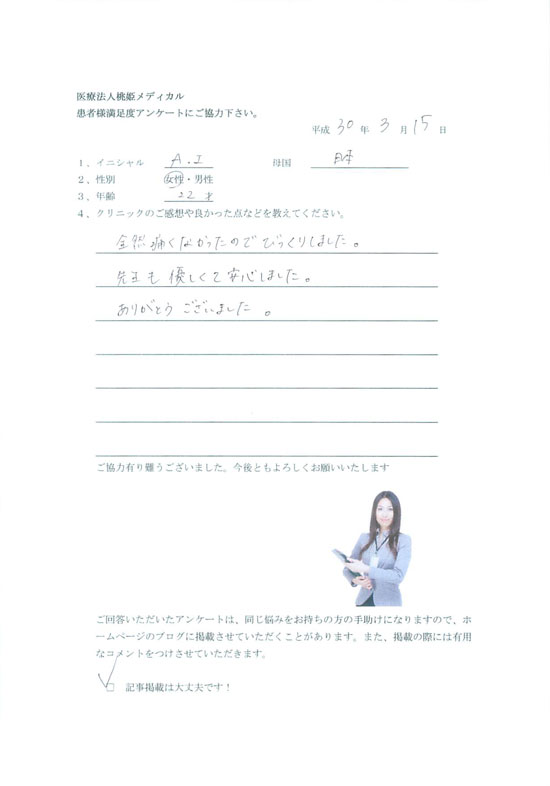 医療法人桃姫メディカル
患者様満足度アンケートにご協力下さい。
平成 30 年 3 月 15 日
1、イニシャル A.I 母国 日本
2、性別 女性・男性
3、年齢 22 才
4、クリニックのご感想や良かった点などを教えてください。
全然痛くなかったのでびっくりしました。
先生も優しくて安心しました。
ありがとうございました。
ご協力有り難うございました。今後ともよろしくお願いいたします
ご回答いただいたアンケートは、同じ悩みをお持ちの方の手助けになりますので、ホ
ームページのブログに掲載させていただくことがあります。また、掲載の際には有用
なコメントをつけさせていただきます。
□ 記事掲載は大丈夫です！